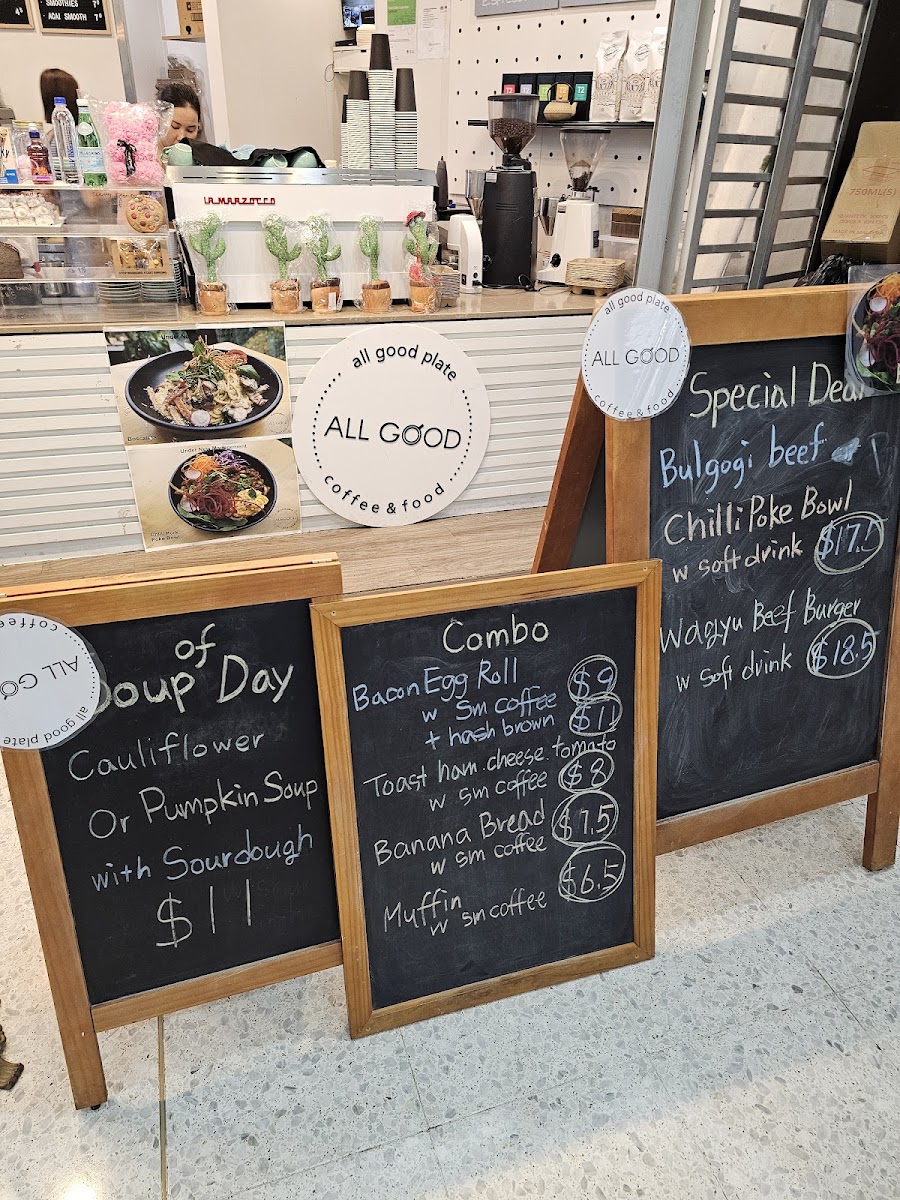 SMOOTHIES 7
ACAI SMOOTH 7
LA MARZOCCO
T2
T2
750ML(S)
all good plate
ALL GOOD
coffee & food
all good plate
ALL GOOD
coffee & food
Special Deal
Bulgogi beef
Chilli Poke Bowl
w soft drink $17.5
Wagyu Beef Burger
w soft drink $18.5
coffee
ALL GO
all good plate
of
Soup Day
Cauliflower
Or Pumpkin Soup
with Sourdough
$11
Combo
Bacon Egg Roll $9
w sm coffee
+ hash brown $11
Toast ham.cheese.tomato
w sm coffee $8
Banana Bread $7.5
w sm coffee
Muffin $6.5
w sm coffee